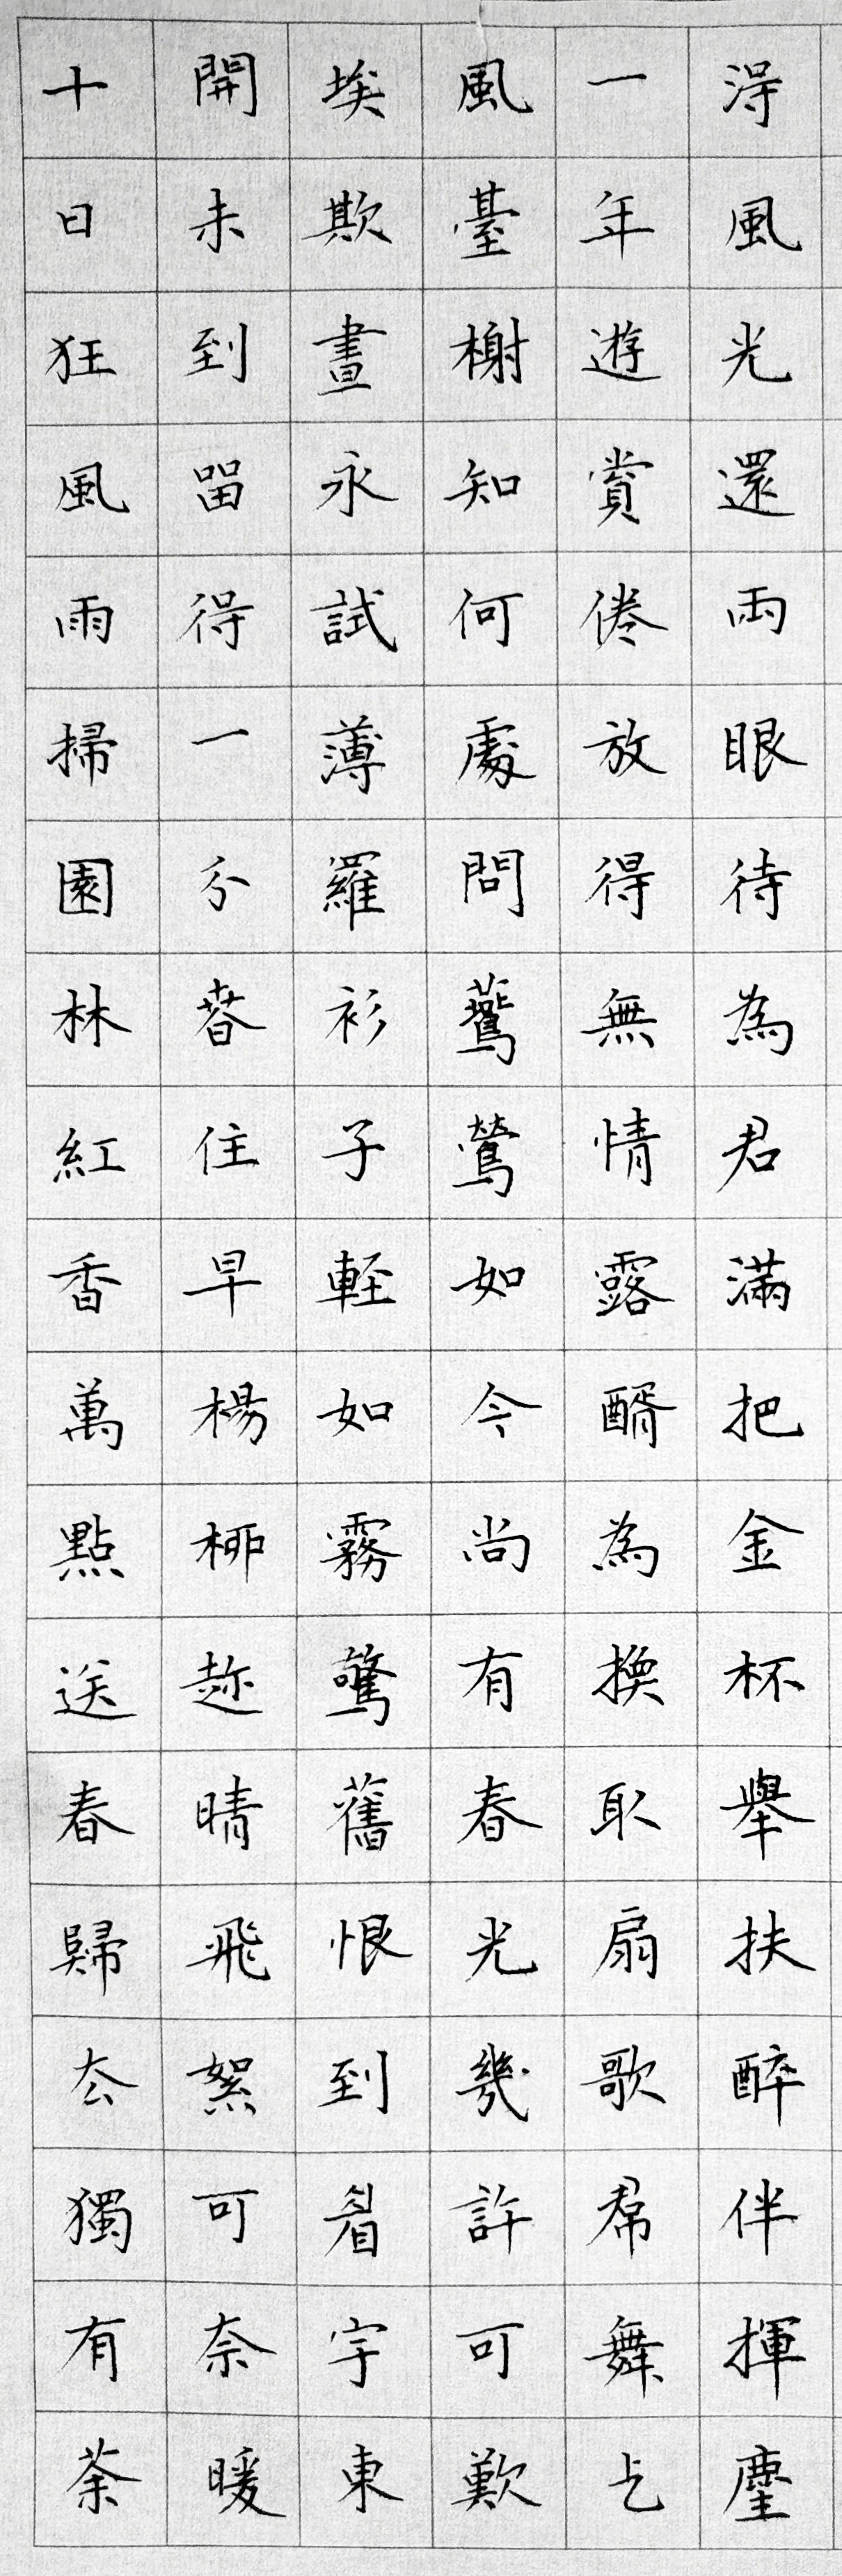 淂風光還兩眼待為君滿把金杯舉扶醉伴揮麈
一年遊賞倦放得無情露醑為換取扇歌帬舞乞
風臺榭知何處問鷰鶯如今尚有春光幾許可歎
埃欺晝永試薄羅衫子輕如霧驚舊恨到眉宇東
開未到留得一分春住早楊柳趂晴飛絮可奈暖
十日狂風雨掃園林紅香萬點送春歸去獨有荼